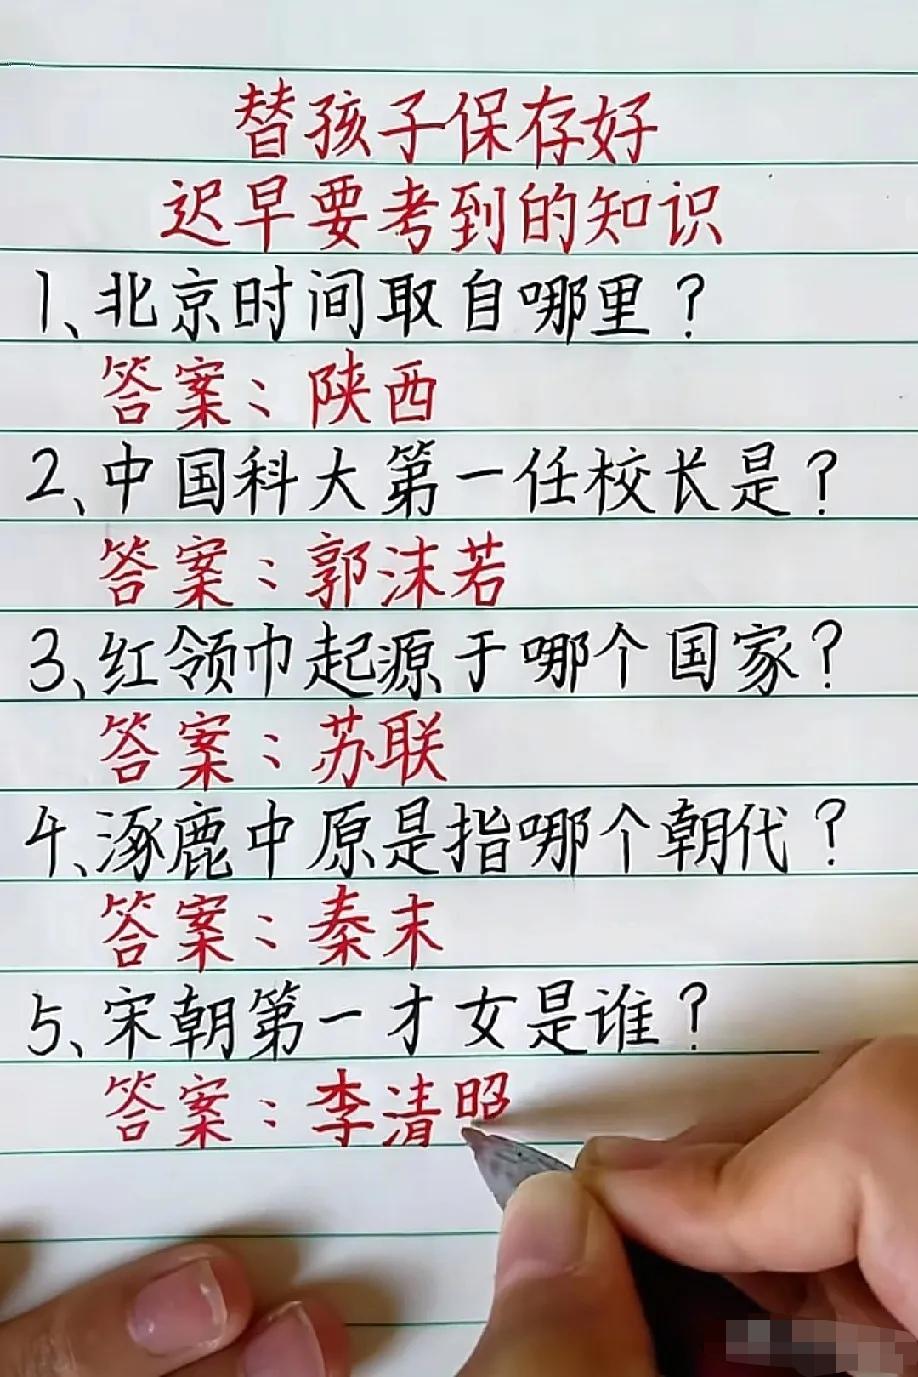 替孩子保存好
迟早要考到的知识
1、北京时间取自哪里?
答案:陕西
2、中国科大第一任校长是?
答案:郭沫若
3、红领巾起源于哪个国家?
答案:苏联
4、涿鹿中原是指哪个朝代?
答案:秦末
5、宋朝第一才女是谁?
答案:李清照